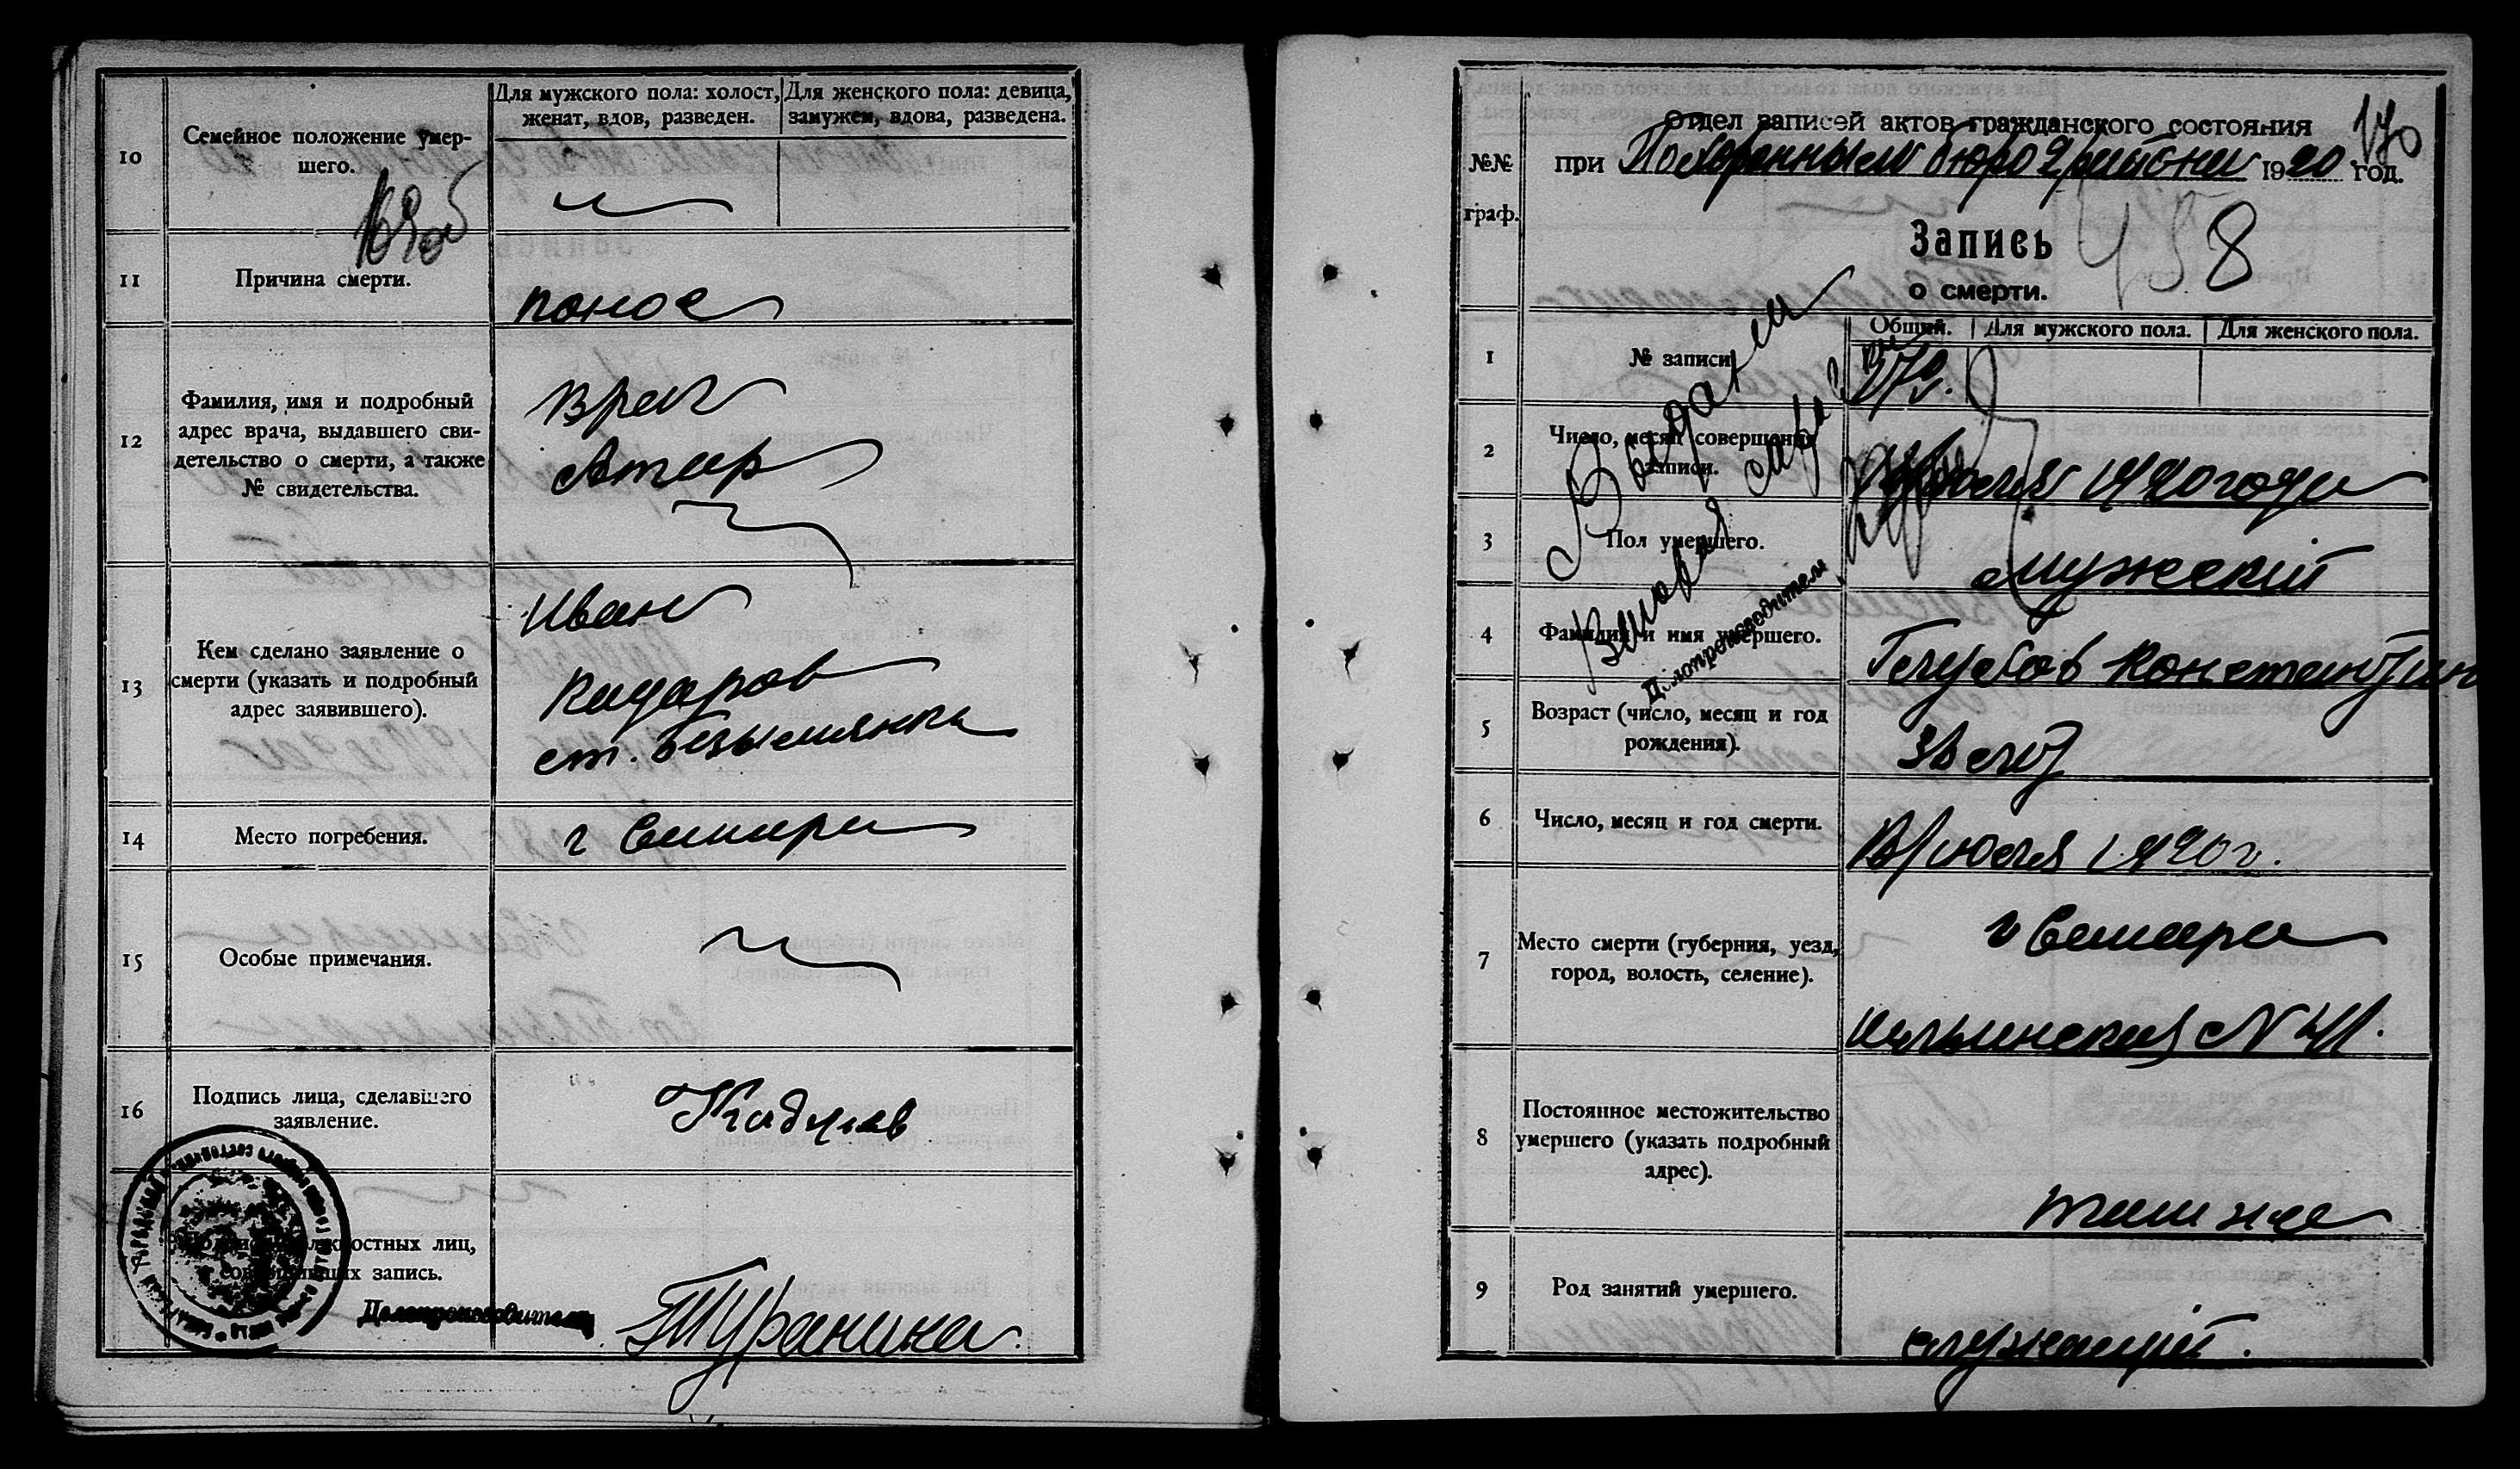 10
Семейное положение умер-
шего.
Для мужского пола: холост,
женат, вдов, разведен.
Для женского пола: девица,
замужем, вдова, разведена.
11
Причина смерти.
понос
12
Фамилия, имя и подробный
адрес врача, выдавшего сви-
детельство о смерти, а также
№ свидетельства.
Врач
13
Кем сделано заявление о
смерти (указать и подробный
адрес заявившего).
Иван
ст. Безымянка
14
Место погребения.
г Самара
15
Особые примечания.
16
Подпись лица, сделавшего
заявление.
должностных лиц,
запись.
Делопроизводитель
№№
граф.
Отдел записей актов гражданского состояния
170
при Похоронным бюро 2 района 1920 год.
Запись
458
о смерти.
Общий.
Для мужского пола.
Для женского пола.
1
№ записи
170.
2
Число, месяц совершения
записи.
июля 1920 года
3
Пол умершего.
мужский
4
Фамилия и имя умершего.
Голубов Константин
5
Возраст (число, месяц и год
рождения).
лет
6
Число, месяц и год смерти.
июля 1920 г.
7
Место смерти (губерния, уезд,
город, волость, селение).
г Самара
Ильинская №
8
Постоянное местожительство
умершего (указать подробный
адрес).
там же
9
Род занятий умершего.
служащий.
Делопроизводитель